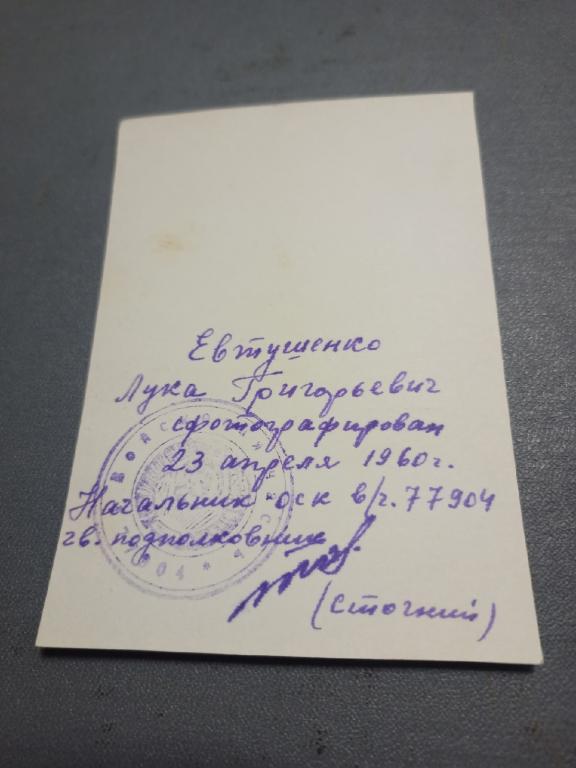 Евтушенко
Лука Григорьевич
сфотографирован
23 апреля 1960г.
Начальник оск в/ч. 77904
гв. подполковник
(Стогний)
ВОЙСКОВАЯ ЧАСТЬ * 77904 *